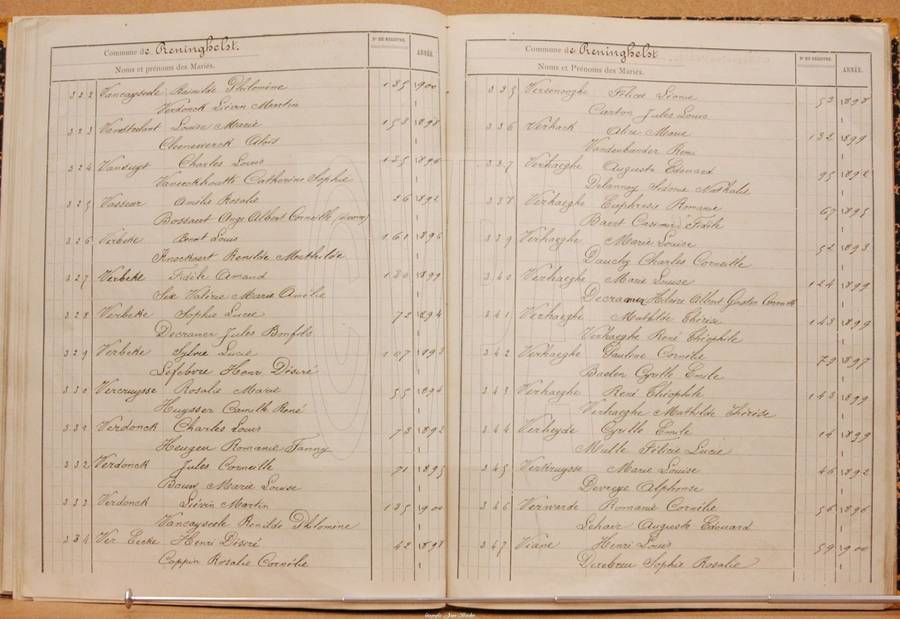 Commune de Reninghelst.
Nº DE REGISTRE.
ANNÉE.
Noms et prénoms des Mariés.
322 Vancayseele Philomine 135 1900
Verdonck Liévin Martin
323 Louise Marie 153 1898
324 Charles Louis 1896
Catherine Sophie
325 Vasseur Amélie Rosalie 26 1892
Bossaert Ange Albert Corneille
326 Verbeke Benoit Louis 161 1896
Knockaert Renilde Mathilde
327 Verbeke Fidèle Amand 1899
Six Valérie Marie Amélie
328 Verbeke Sophie Lucie 72 1894
Decramer Jules Bonfils
329 Verbeke Sylvie Lucie 107 1898
Lefebvre Henri Désiré
330 Vercruysse Rosalie Marie 55 1896
Huyssen Camille René
331 Verdonck Charles Louis 73 1892
Heugen Romanie Fanny
332 Verdonck Jules Corneille 71 1895
Marie Louise
333 Verdonck Liévin Martin 135 1900
Vancayseele Renilde Philomine
334 Ver Eecke Henri Désiré 42 1898
Coppin Rosalie Cornélie
Commune de Reninghelst
Nº DE REGISTRE.
ANNÉE.
Noms et Prénoms des Mariés.
335 Félicie Léonie 53 1898
Carton Jules Louis
336 Alice Marie 132 1899
Vandenbander Remi
337 Verhaeghe Auguste Edouard 95 1892
Delannoy Sidonie Nathalie
338 Verhaeghe Euphrasie Romanie 67 1895
Baert Casimir Fidèle
339 Verhaeghe Marie Louise 52 1893
Dauchy Charles Corneille
340 Verhaeghe Marie Louise 124 1899
Decramer Hilaire Albert Gaston Corneille
341 Verhaeghe Mathilde Thérèse 143 1899
Verhaeghe René Théophile
342 Verhaeghe Pauline Cornélie 79 1897
Baelen Cyrille Emile
343 Verhaeghe René Théophile 143 1899
Verhaeghe Mathilde Thérèse
344 Verheyde Cyrille Emile 14 1899
Mulle Félicie Lucie
345 Verkruysse Marie Louise 46 1892
Alphonse
346 Verwarde Romanie Cornélie 56 1896
Auguste Edouard
347 Viane Henri Louis 59 1900
Sophie Rosalie